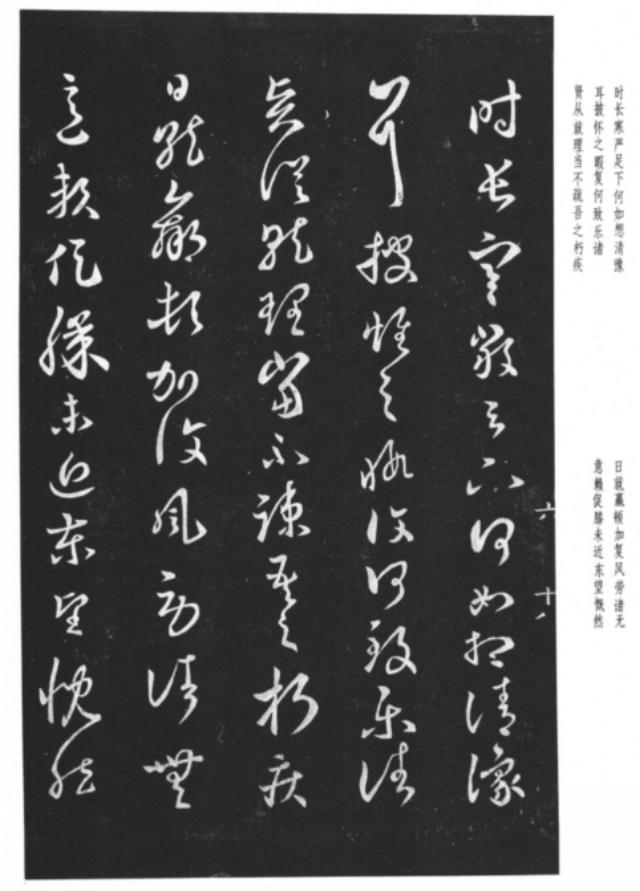 时长寒严足下何如想清豫
耳披怀之暇复何致乐诸
贤从就理当不疏吾之朽疾
日就羸顿加复风劳诸无
意赖促膝未近东望慨然
時長寒嚴足下何如想清豫
六十
耳披懷之暇復何致樂諸
賢從就理當不疎吾之朽疾
日就羸頓加復風勞諸無
意賴促膝未近東望慨然